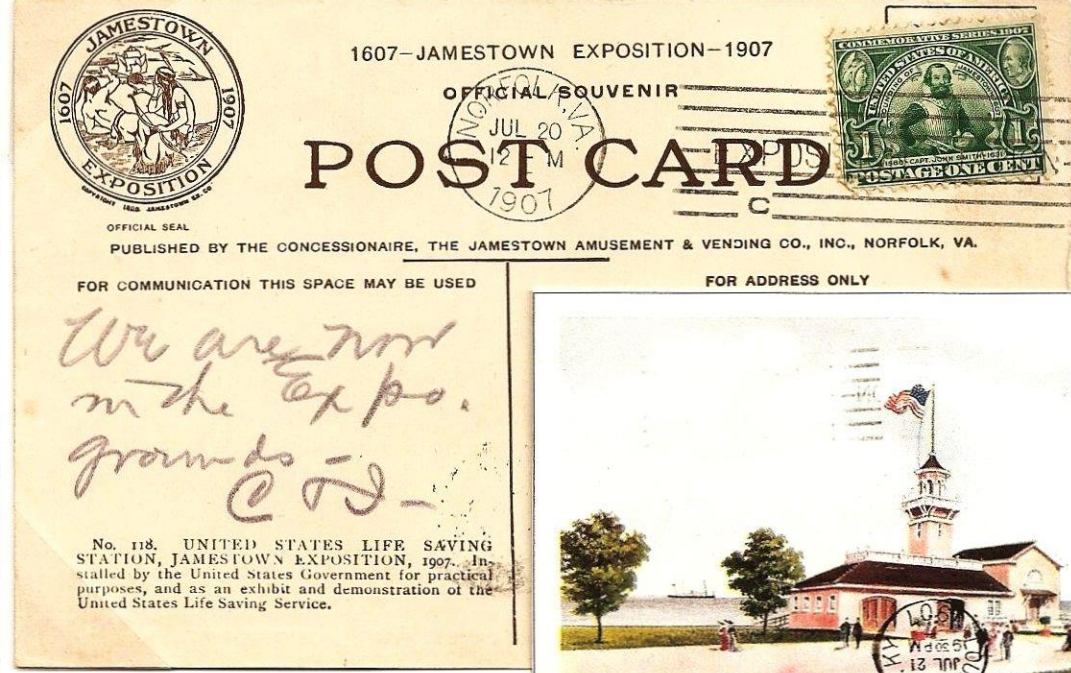 JAMESTOWN
1607 1907
EXPOSITION
OFFICIAL SEAL
1607–JAMESTOWN EXPOSITION–1907
OFFICIAL SOUVENIR
POST CARD
NORFOLK, VA.
JUL 20
12 M
1907
EXPOSI
C
COMMEMORATIVE SERIES 1907
UNITED STATES OF AMERICA
FOUNDING OF JAMESTOWN
1 1
1580–CAPT. JOHN SMITH–1631
POSTAGE ONE CENT
PUBLISHED BY THE CONCESSIONAIRE, THE JAMESTOWN AMUSEMENT & VENDING CO., INC., NORFOLK, VA.
FOR COMMUNICATION THIS SPACE MAY BE USED
We are now
in the Expo.
grounds –
No. 118. UNITED STATES LIFE SAVING
STATION, JAMESTOWN EXPOSITION, 1907. In-
stalled by the United States Government for practical
purposes, and as an exhibit and demonstration of the
United States Life Saving Service.
FOR ADDRESS ONLY
JUL 21
1907